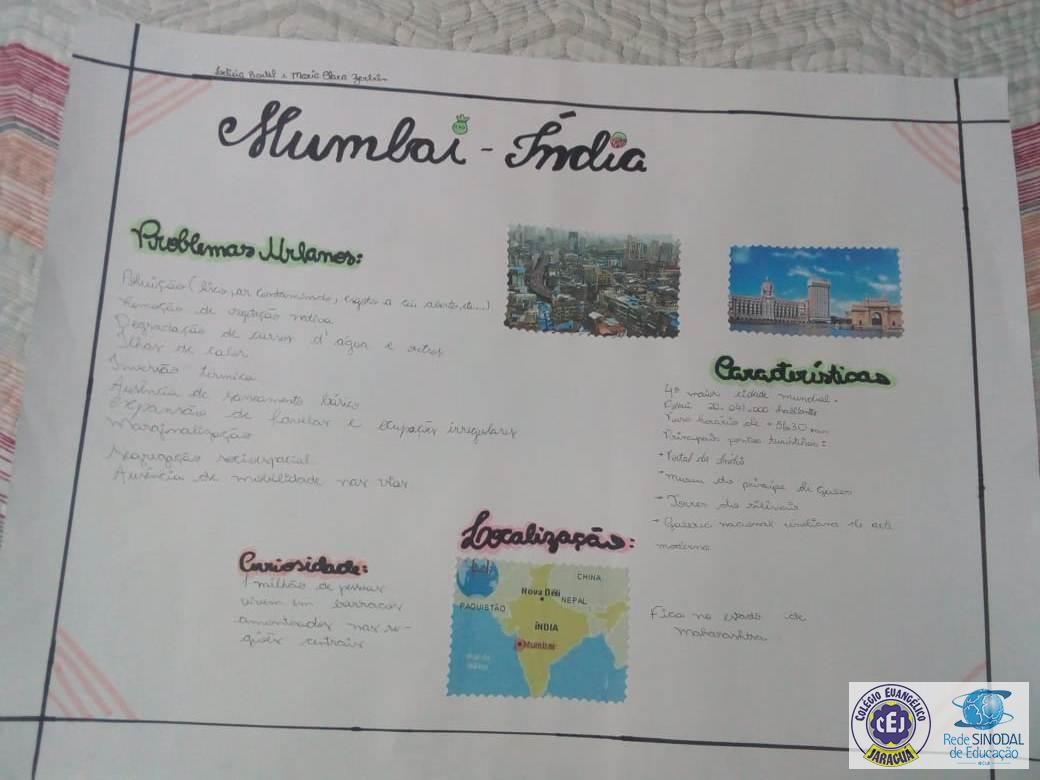 Letícia e Maria Clara
Mumbai - Índia
Problemas Urbanos:
Poluição (lixo, ar contaminado, esgoto a céu aberto, etc...)
Remoção de vegetação nativa
Degradação de cursos d'água e outros
Ilhas de calor
Inversão térmica
Ausência de saneamento básico
Expansão de favelas e ocupações irregulares
Marginalização
Segregação socioespacial
Ausência de mobilidade nas vias
Características
4ª maior cidade mundial.
Possui 20.041.000 habitantes
Fuso horário de +5h30 min
Principais pontos turísticos:
- Portal da Índia
- Museu do príncipe de Gales
- Torres do silêncio
- Galeria nacional indiana de arte
moderna
Curiosidade:
1 milhão de pessoas
vivem em barracos
amontoados nas re-
giões centrais
Localização:
CHINA
Nova Déli
NEPAL
PAQUISTÃO
ÍNDIA
Mumbai
Fica no estado de
Maharashtra
COLÉGIO EVANGÉLICO
CEJ
JARAGUÁ
Rede SINODAL
de Educação